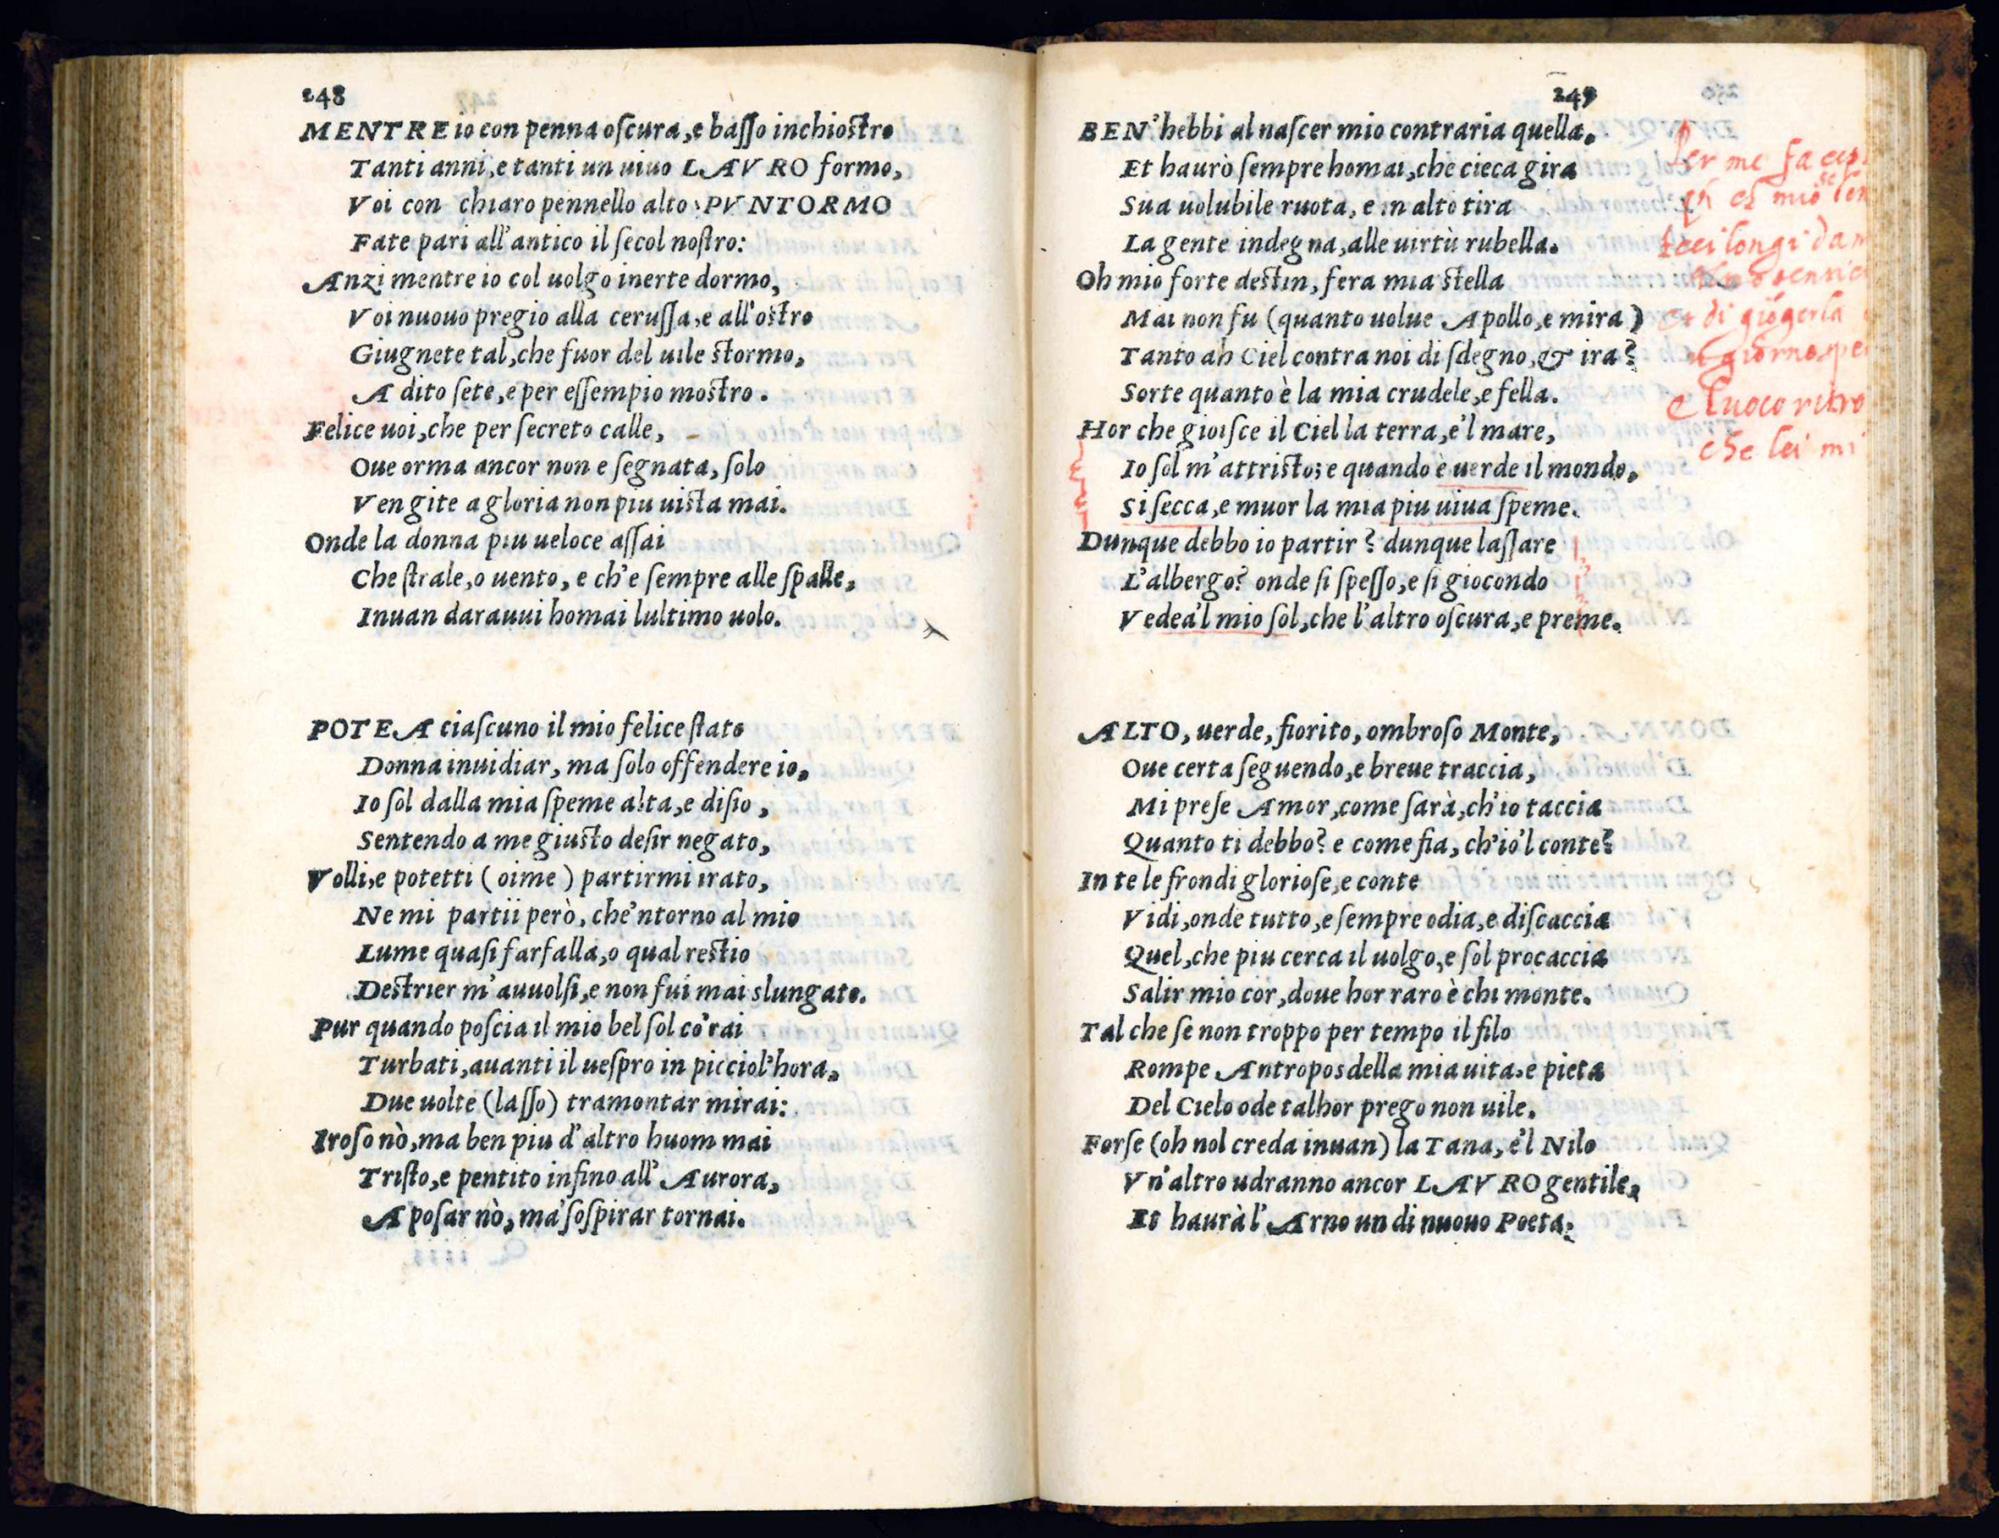 248
MENTRE io con penna oſcura, e baſſo inchioſtro
Tanti anni, e tanti un uiuo LAVRO formo,
Voi con chiaro pennello alto PVNTORMO
Fate pari all'antico il ſecol noſtro:
Anzi mentre io col uolgo inerte dormo,
Voi nuouo pregio alla ceruſſa, e all'oſtro
Giugnete tal, che fuor del uile ſtormo,
A dito ſete, e per eſſempio moſtro.
Felice uoi, che per ſecreto calle,
Oue orma ancor non e ſegnata, ſolo
Vengite a gloria non piu uiſta mai.
Onde la donna piu ueloce aſſai
Che ſtrale, o uento, e ch'e ſempre alle ſpalle,
Inuan darauui homai lultimo uolo.
POTEA ciaſcuno il mio felice ſtato
Donna inuidiar, ma ſolo offendere io,
Io ſol dalla mia ſpeme alta, e diſio,
Sentendo a me giuſto deſir negato,
Volli, e potetti (oime) partirmi irato,
Ne mi partii però, che'ntorno al mio
Lume quaſi farfalla, o qual reſtio
Deſtrier m'auuolſi, e non fui mai slungato.
Pur quando poſcia il mio bel ſol co'rai
Turbati, auanti il ueſpro in picciol'hora,
Due uolte (laſſo) tramontar mirai:
Iroſo nò, ma ben piu d'altro huom mai
Triſto, e pentito inſino all'Aurora,
A poſar nò, ma'ſoſpirar tornai.
249
BEN'hebbi al naſcer mio contraria quella,
Et haurò ſempre homai, che cieca gira
Sua uolubile ruota, e in alto tira
La gente indegna, alle uirtù rubella.
Oh mio forte deſtin, fera mia ſtella
Mai non fu (quanto uolue Apollo, e mira)
Tanto ah Ciel contra noi di ſdegno, & ira?
Sorte quanto è la mia crudele, e fella.
Hor che gioiſce il Ciel la terra, e'l mare,
Io ſol m'attriſto; e quando è uerde il mondo,
Si ſecca, e muor la mia piu uiua ſpeme.
Dunque debbo io partir? dunque laſſare
L'albergo? onde ſi ſpeſſo, e ſi giocondo
Vedea'l mio ſol, che l'altro oſcura, e preme.
ALTO, uerde, fiorito, ombroſo Monte,
Oue certa ſeguendo, e breue traccia,
Mi preſe Amor, come ſarà, ch'io taccia
Quanto ti debbo? e come fia, ch'io'l conte?
In te le frondi glorioſe, e conte
Vidi, onde tutto, e ſempre odia, e diſcaccia
Quel, che piu cerca il uolgo, e ſol procaccia
Salir mio cor, doue hor raro è chi monte.
Tal che ſe non troppo per tempo il filo
Rompe Antropos della mia uita, e pieta
Del Cielo ode talhor prego non uile,
Forſe (oh nol creda inuan) la Tana, e'l Nilo
Vn'altro udranno ancor LAVRO gentile,
Et haurà l'Arno un di nuouo Poeta.
Per me fa
mio
longi da
di giogerla
giorno
e luoco ritro
che lei mi